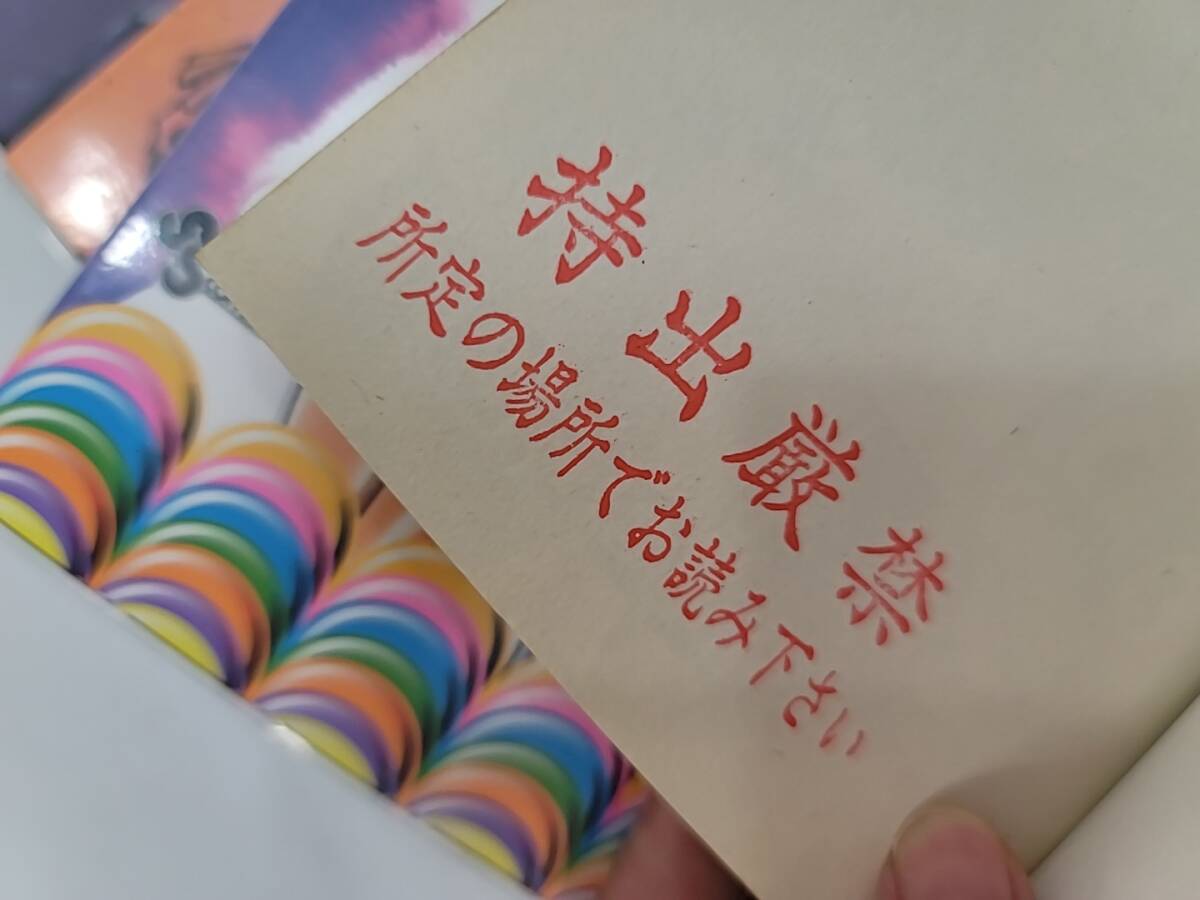 持出厳禁
所定の場所でお読み下さい